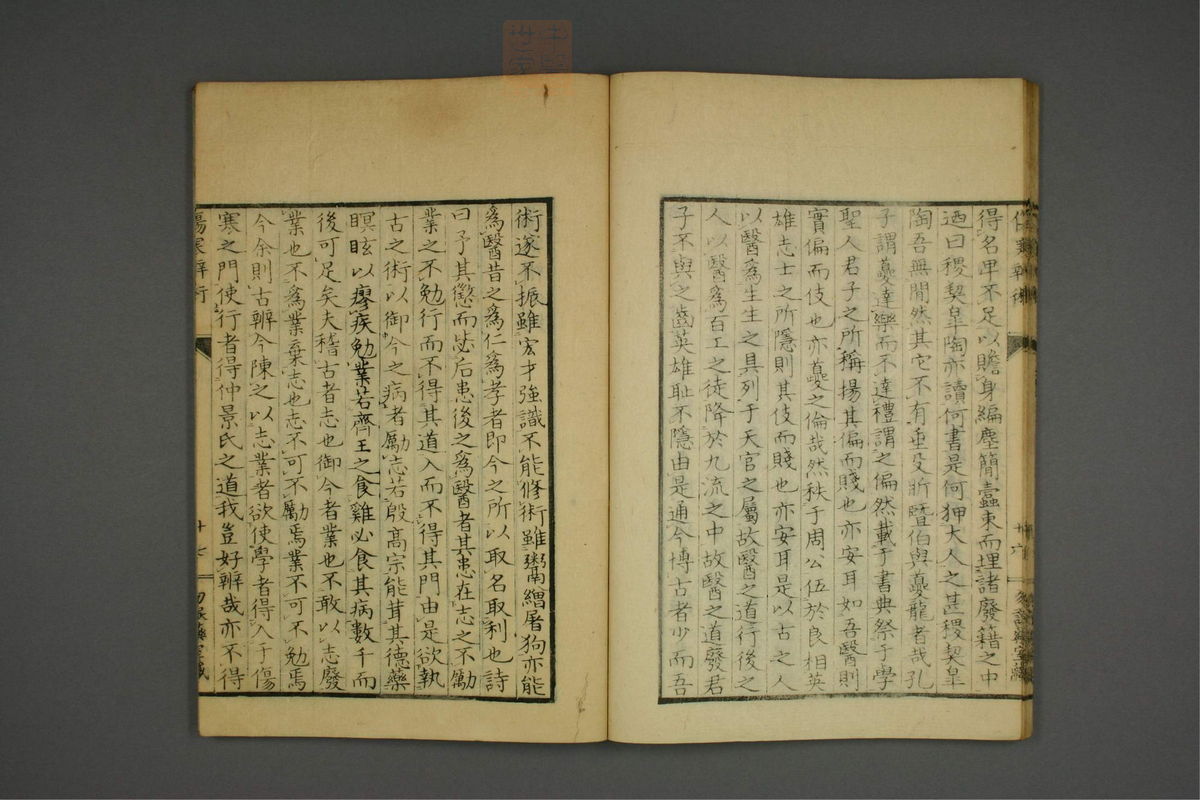 傷寒辨術
得名卑不足以贍身編塵簡蠹束而埋諸廢籍之中
迺曰稷契皐陶亦讀何書是何狎大人之甚稷契皐
陶吾無間然其它不有垂殳斨暨伯與夔龍者哉孔
子謂夔達樂而不達禮謂之偏然載于書典祭于學
聖人君子之所稱揚其偏而賤也亦安耳如吾醫則
實偏而伎也亦夔之倫哉然秩于周公伍於良相英
雄志士之所隱則其伎而賤也亦安耳是以古之人
以醫爲生生之具列于天官之屬故醫之道行後之
人以醫爲百工之徒降於九流之中故醫之道廢君
子不與之齒英雄耻不隱由是通今博古者少而吾
術遂不振雖宏才強識不能修術雖鬻繒屠狗亦能
爲醫昔之爲仁爲孝者即今之所以取名取利也詩
曰予其懲而毖后患後之爲醫者其患在志之不勵
業之不勉行而不得其道入而不得其門由是欲執
古之術以御今之病者勵志若殷高宗能茸其德藥
瞑眩以瘳疾勉業若齊王之食雞必食其病數千而
後可足矣夫稽古者志也御今者業也不敢以志廢
業也不爲業棄志也志不可不勵焉業不可不勉焉
今余則古辨今陳之以志業者欲使學者得入于傷
寒之門使行者得仲景氏之道我豈好辨哉亦不得
傷寒辨術
廿七